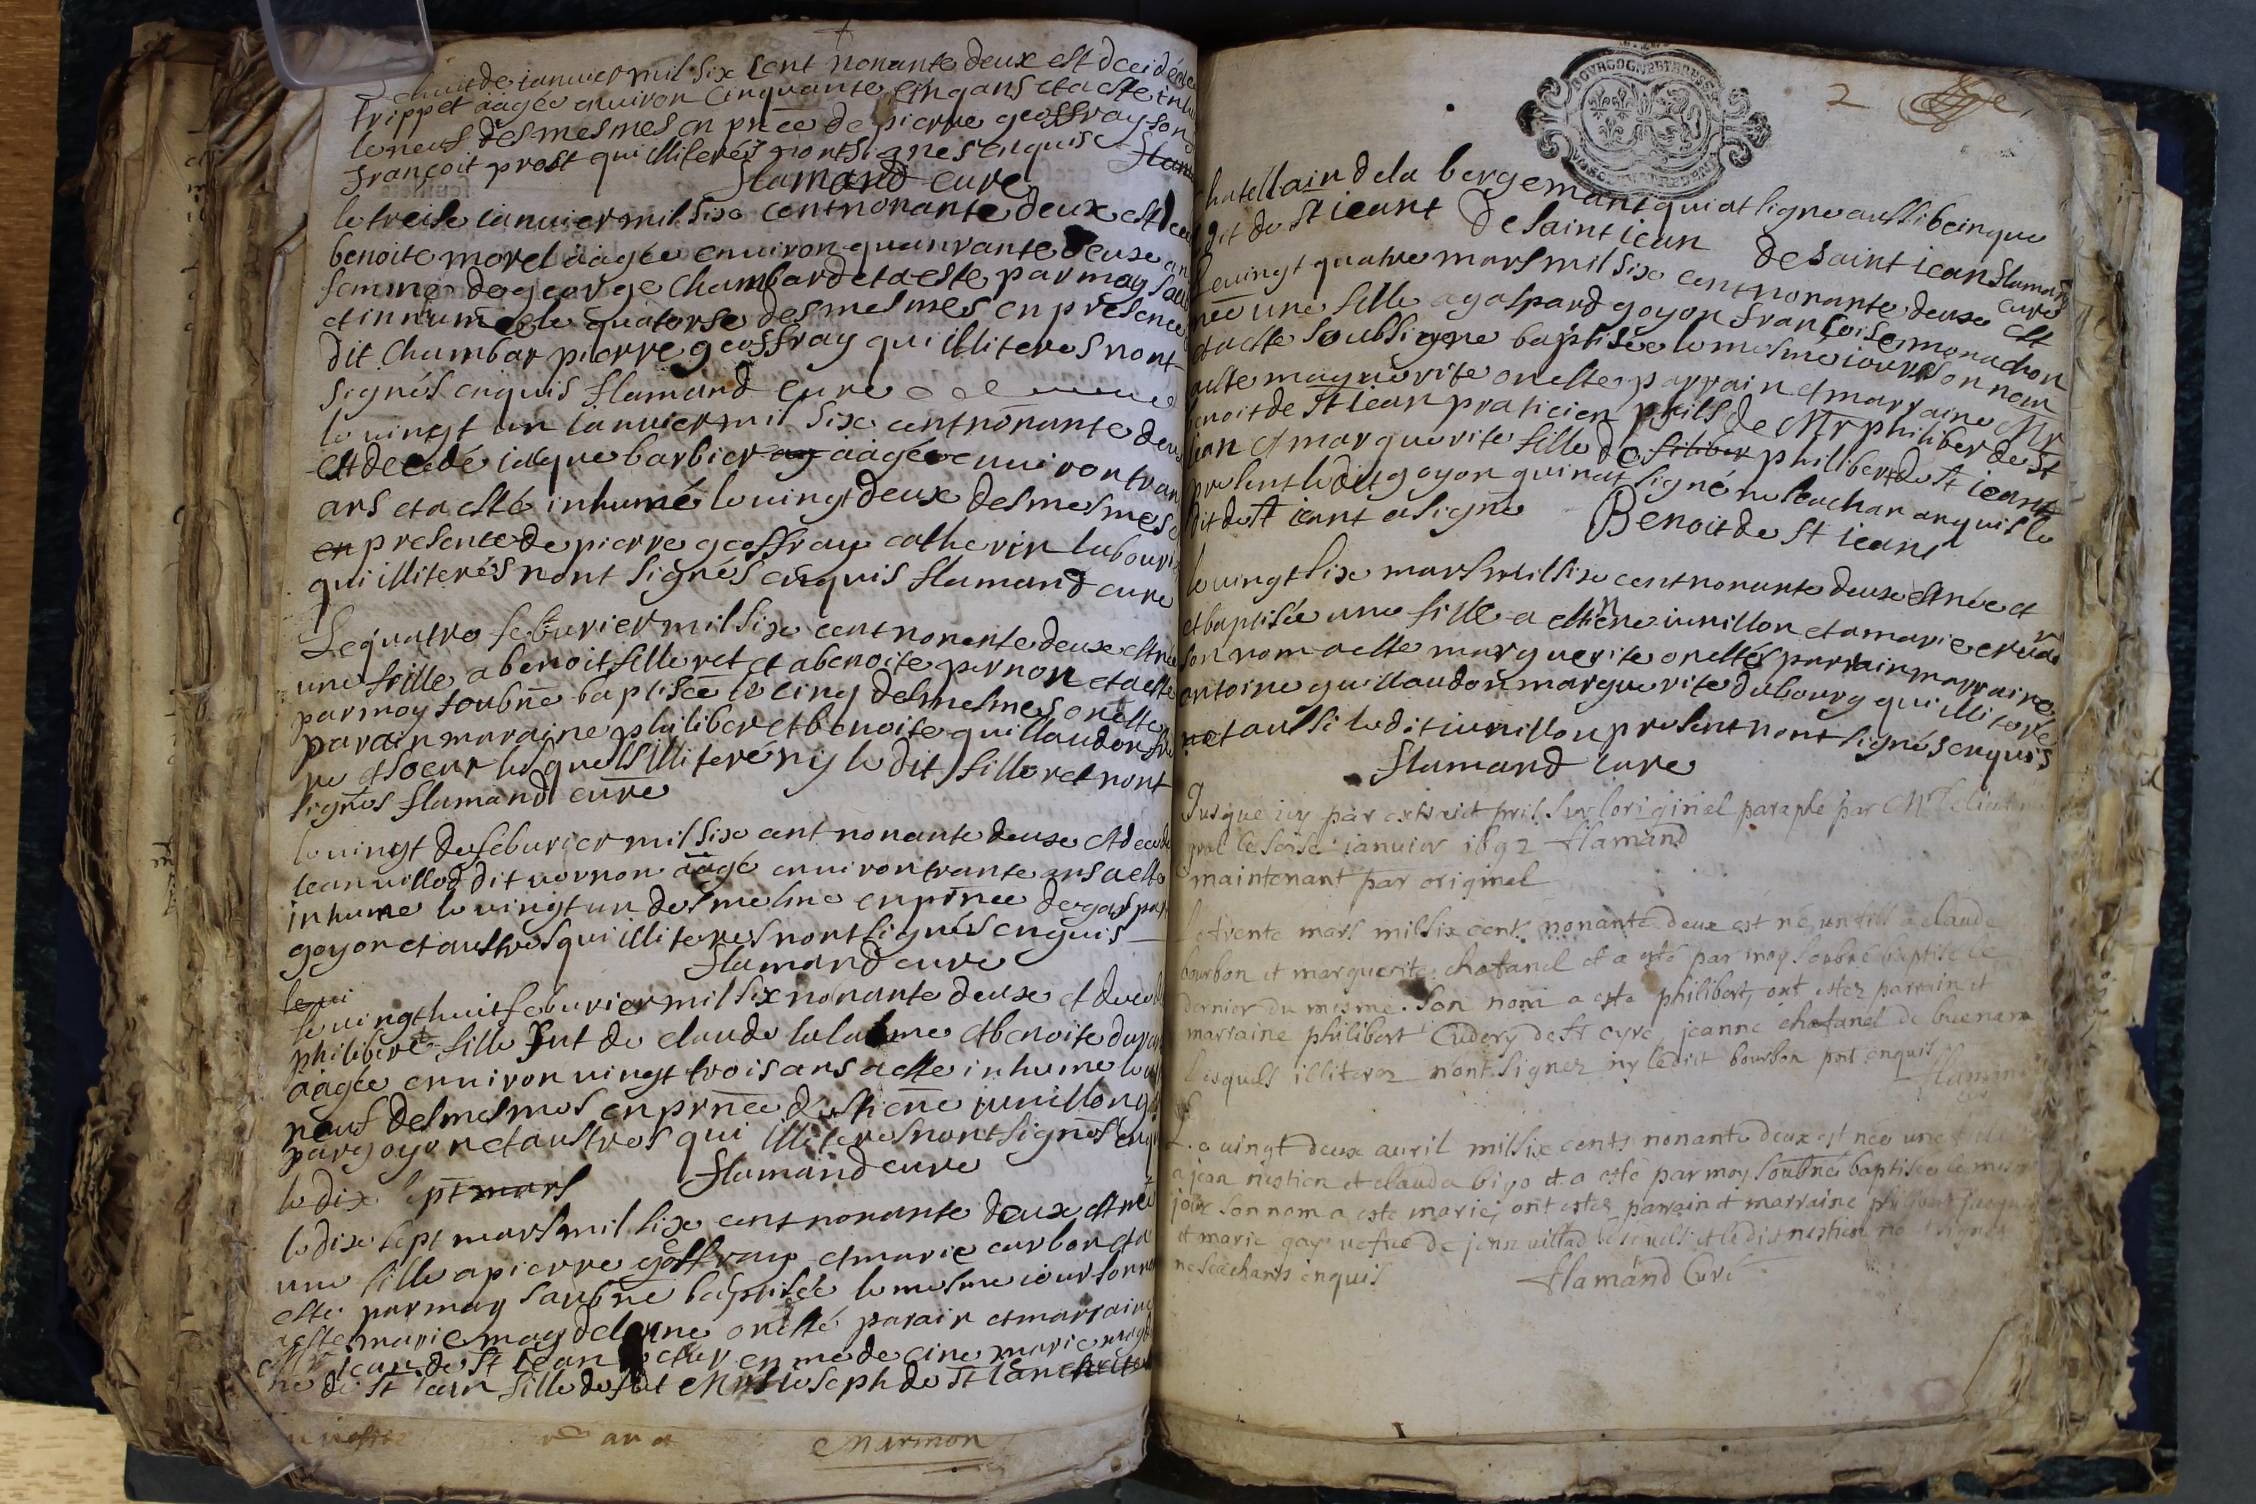 huit de ianvier mil six cent nonante deux est
trippet aagée enuiron cinquante cinq ans et a esté
le neuf desmesmes en pnce de pierre geoffray son
françoit prost qui illiterés nont signes enquis
flamand cure
le treise ianuier mil six cent nonante deux est
benoite morel aagée enuiron quanrante deux an
femme de george chambard et a este par moy
et innumée le quatorse desmesmes en presence
dit Chambar pierre geoffray qui illiteres nont
signés enquis flamand cure
le uingt un ianuier mil six cent nonante deux
est decedé iaque barbier aagé enuiron tran
ans et a esté inhumé le uingt deux desmesmes
en presence de pierre geoffray catherin labouri
qui illiterés nont signés enquis flamand cure
Le quatre feburier mil six cent nonante deux est née
une fille a benoit filleret et a benoite pernon et a esté
par moy soubne baptisée le cinq desmesmes on ester
parain maraine philiber et benoite guillaudon fre
re et soeur lesquels illiteré ny le dit filleret nont
signes flamand cure
le uingt de feburier mil six cent nonante deux est decede
iean uillod dit uernon aagé enuiron trante ans a esté
inhume le uingt un desmesme en pnce de gaspar
goyon et austres qui illiteres nont signés enquis
flamand cure
le ui
le uingt huit feburier mil six nonante deux et
philibert fille fut de claude et benoite
aagée enuiron uingt trois ans a esté inhume
neuf desmesmes en pnce destiene iunillon
par goyon et austres qui illiteres nont signés enqu
flamand cure
le dix sept mars
le dix sept mars mil six cent nonante deux est née
une fille a pierre goffray et marie carbon et a
esté par moy soubne baptisée le mesme iour son
a esté marie magdelenne on esté parain et marraine
Mr iean de st iean en medecine marie
ne de st iean fille de fut Mr ioseph de st iean
Marmon
2
BOVRGOGNE ET BRESSE
chatellain de la bergemant qui at signe aussi bein que
dit de st ieant de saint iean de saint iean flamand
cure
Le uingt quatre mars mil six cent nonante deux est
née une fille a gaspard goyon francoise monachon
et a esté soubsigne baptisée le mesme iour son nom
aeste marguerite on ester parrain et marraine Mr
benoit de st iean praticien fils de Mr philiber de st
iean et marguerite fille de filiber philibert de st ieant
present le dit goyon qui nat signé ne seachan anquis le
dit de st ieant a signe Benoit de st ieant
le uingt six mars mil six cent nonante deux est née et
et baptisée une fille a estiene iunillon et a marie
son nom a esté marguerite on estés parrain marraine
antoine guillaudon marguerite dubourg qui illiterés
et aussi le dit iunillon present nont signés enquis
flamand cure
Jusque icy par extrait pris sur loriginel paraphé par Mr
le seise ianuier 1692 flamand
maintenant par originel
Le trente mars mil six cent nonante deux est né un fils a claude
bourbon et marguerite chatanel et a esté par moy soubné baptisé le
dernier du mesme. Son nom a esté philibert, ont estez parrain et
marraine philibert Cudery de st cyre, jeanne chatanel de buenan
Lesquels illiterez nont signez ny ledict bourbon pnt enquis
flamand
Le uingt deux auril mil six cents nonante deux est née une
a jean nestien et clauda bigo et a esté par moy soubné baptisée le mesme
jour son nom a esté marie, ont estez parrain et marraine philibert
et marie gay uefue de jean uillad lesquels et le dit nestien nont signés
ne seachants enquis flamand Curé